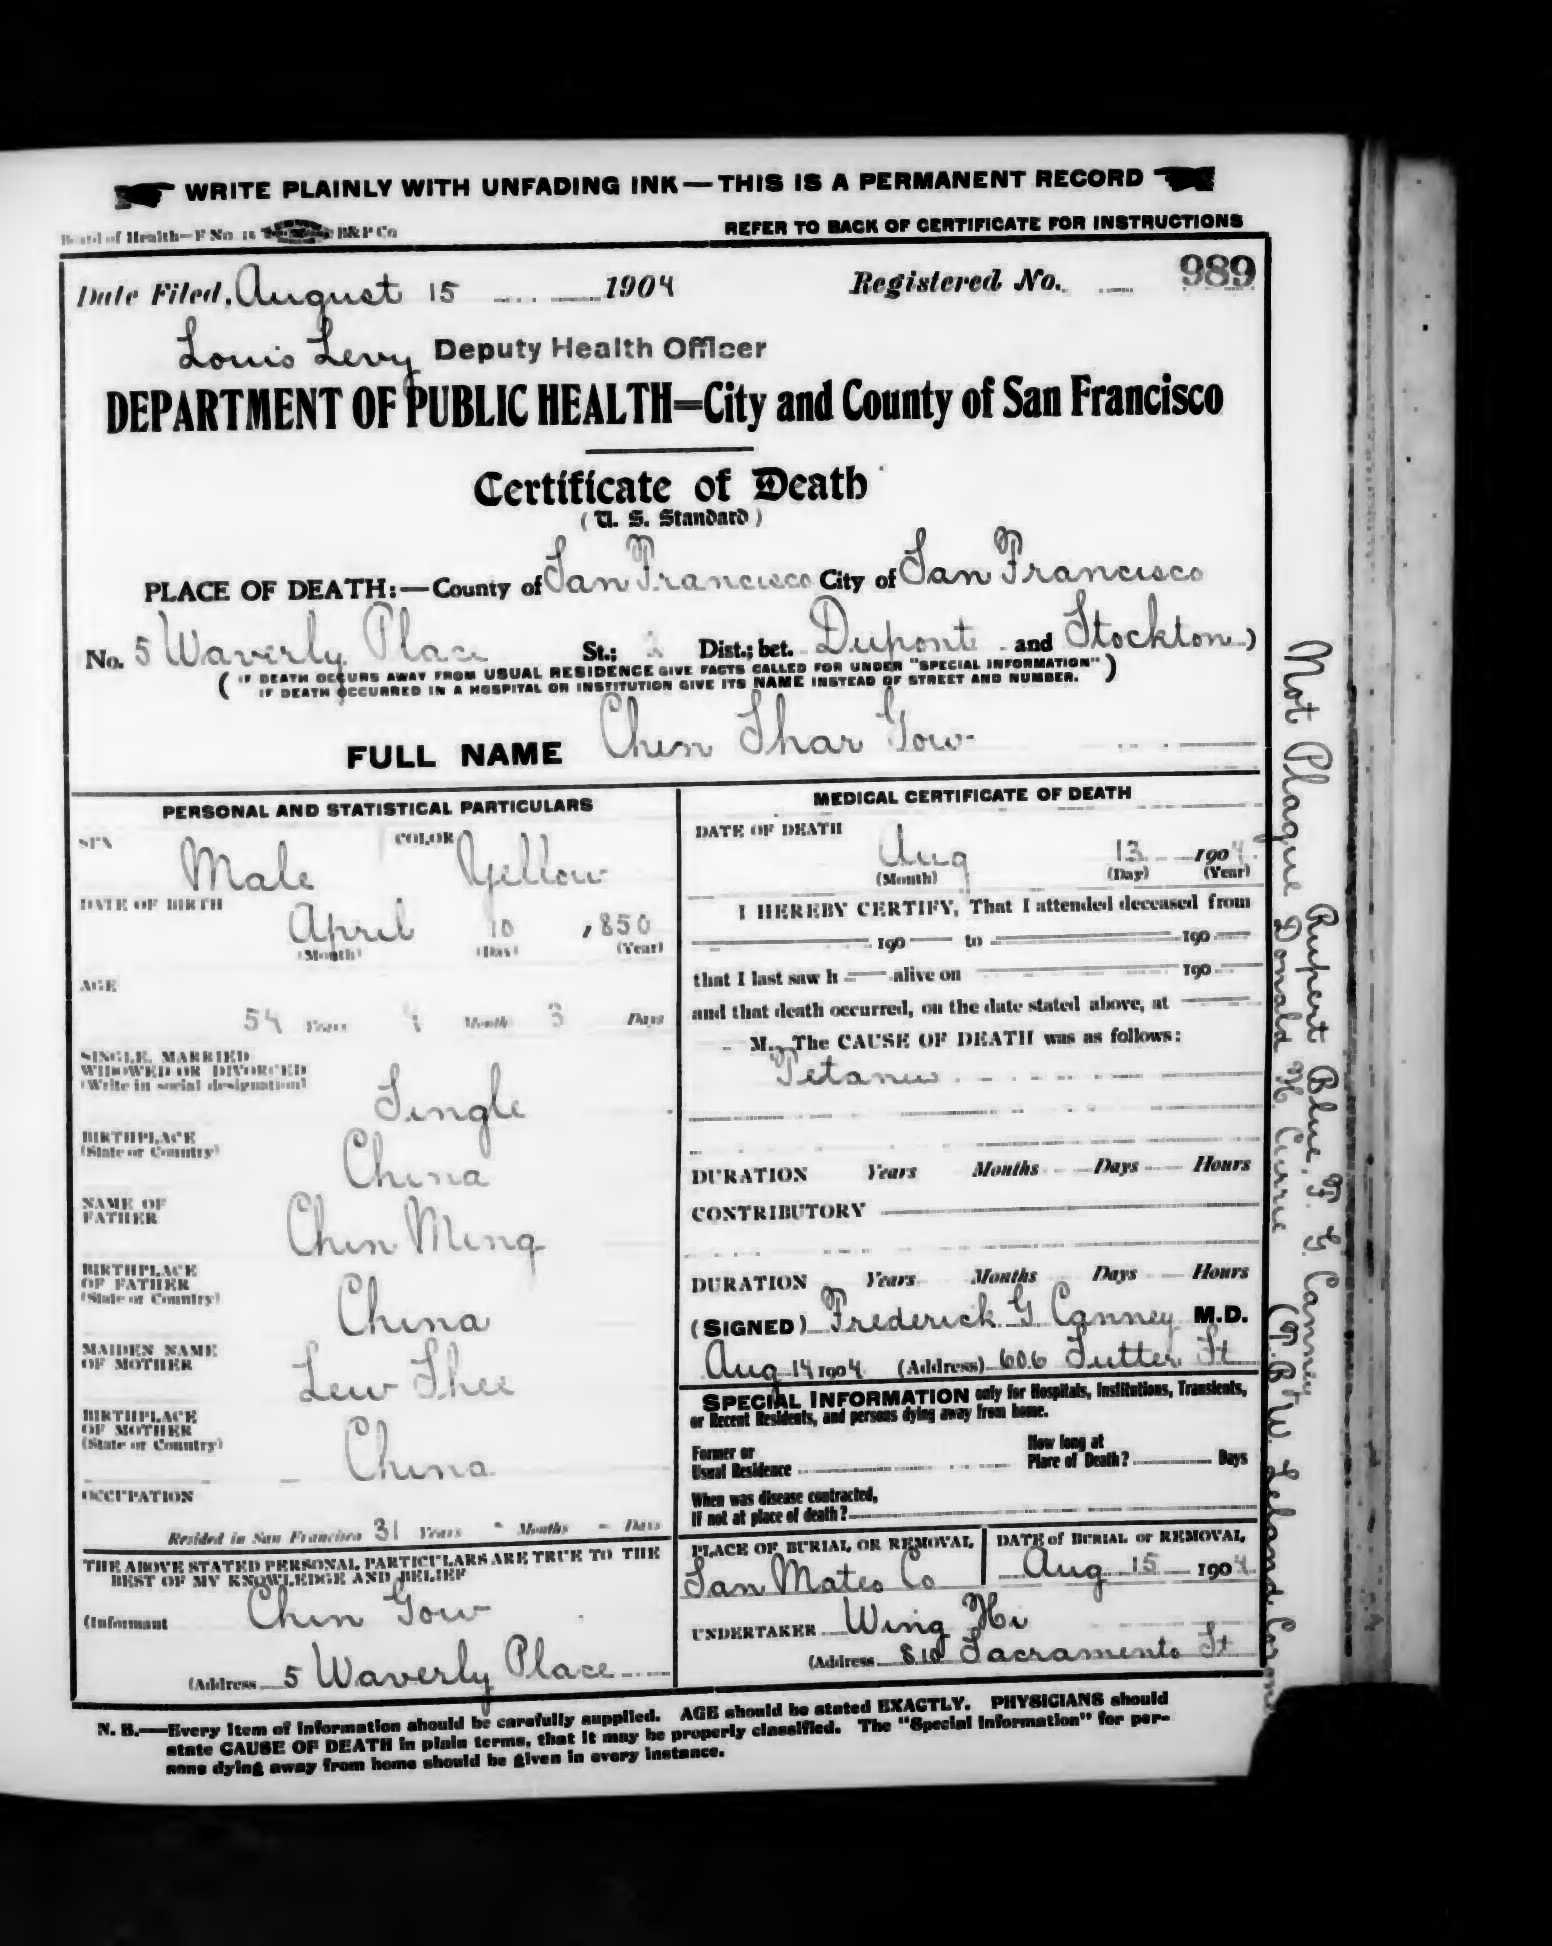 WRITE PLAINLY WITH UNFADING INK — THIS IS A PERMANENT RECORD
Board of Health—F No. 15 B&P Co
REFER TO BACK OF CERTIFICATE FOR INSTRUCTIONS
Date Filed, August 15 1904 Registered No. 989
Louis Levy Deputy Health Officer
DEPARTMENT OF PUBLIC HEALTH=City and County of San Francisco
Certificate of Death
(U. S. Standard)
PLACE OF DEATH:—County of San Francisco City of San Francisco
No. 5 Waverly Place St.; 2 Dist.; bet. Dupont and Stockton )
( IF DEATH OCCURS AWAY FROM USUAL RESIDENCE GIVE FACTS CALLED FOR UNDER "SPECIAL INFORMATION" )
IF DEATH OCCURRED IN A HOSPITAL OR INSTITUTION GIVE ITS NAME INSTEAD OF STREET AND NUMBER.
FULL NAME Chin Shar Gow
PERSONAL AND STATISTICAL PARTICULARS
SEX Male COLOR Yellow
DATE OF BIRTH
April 10 , 850
(Month) (Day) (Year)
AGE
54 Years 4 Months 3 Days
SINGLE, MARRIED
WIDOWED OR DIVORCED
(Write in social designation)
Single
BIRTHPLACE
(State or Country)
China
NAME OF
FATHER
Chin Ming
BIRTHPLACE
OF FATHER
(State or Country)
China
MAIDEN NAME
OF MOTHER
Lew Shee
BIRTHPLACE
OF MOTHER
(State or Country)
China
OCCUPATION
Resided in San Francisco 31 Years - Months - Days
THE ABOVE STATED PERSONAL PARTICULARS ARE TRUE TO THE
BEST OF MY KNOWLEDGE AND BELIEF
(Informant Chin Gow
(Address 5 Waverly Place
MEDICAL CERTIFICATE OF DEATH
DATE OF DEATH
Aug 13 1904
(Month) (Day) (Year)
I HEREBY CERTIFY, That I attended deceased from
190 to 190
that I last saw h alive on 190
and that death occurred, on the date stated above, at
M. The CAUSE OF DEATH was as follows:
Tetanus
DURATION Years Months Days Hours
CONTRIBUTORY
DURATION Years Months Days Hours
(SIGNED) Frederick G. Canney M.D.
Aug 14 1904 (Address) 606 Sutter St
SPECIAL INFORMATION only for Hospitals, Institutions, Transients,
or Recent Residents, and persons dying away from home.
Former or
Usual Residence
How long at
Place of Death? Days
When was disease contracted,
If not at place of death?
PLACE OF BURIAL OR REMOVAL
San Mateo Co
DATE of BURIAL or REMOVAL
Aug 15 1904
UNDERTAKER Wing Hi
(Address 810 Sacramento St
N. B.—Every item of information should be carefully supplied. AGE should be stated EXACTLY. PHYSICIANS should
state CAUSE OF DEATH in plain terms, that it may be properly classified. The "Special Information" for per-
sons dying away from home should be given in every instance.
Not Plague Rupert Blue, F. G. Canney
Donald H. Currie (T. B. W. Leland, Coroner